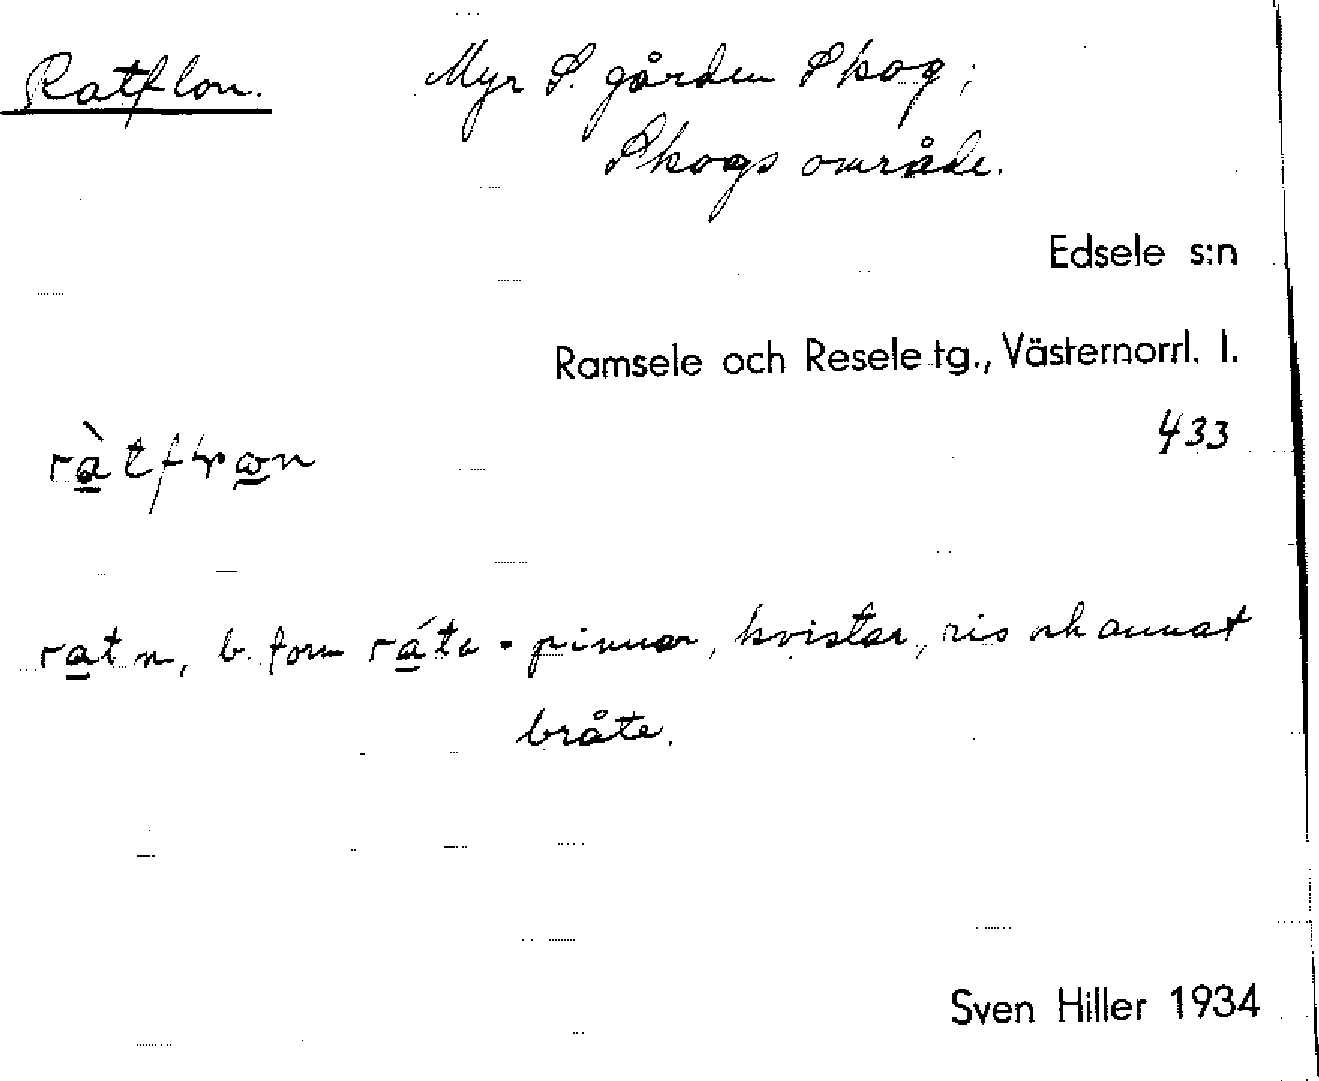 Ratflon. Myr S. gården Skog;
Skogs område.
Edsele s:n
Ramsele och Resele tg., Västernorrl. l.
433
rat n, b. form ráta - pinnar, kvistar, ris och annat
bråte.
Sven Hiller 1934